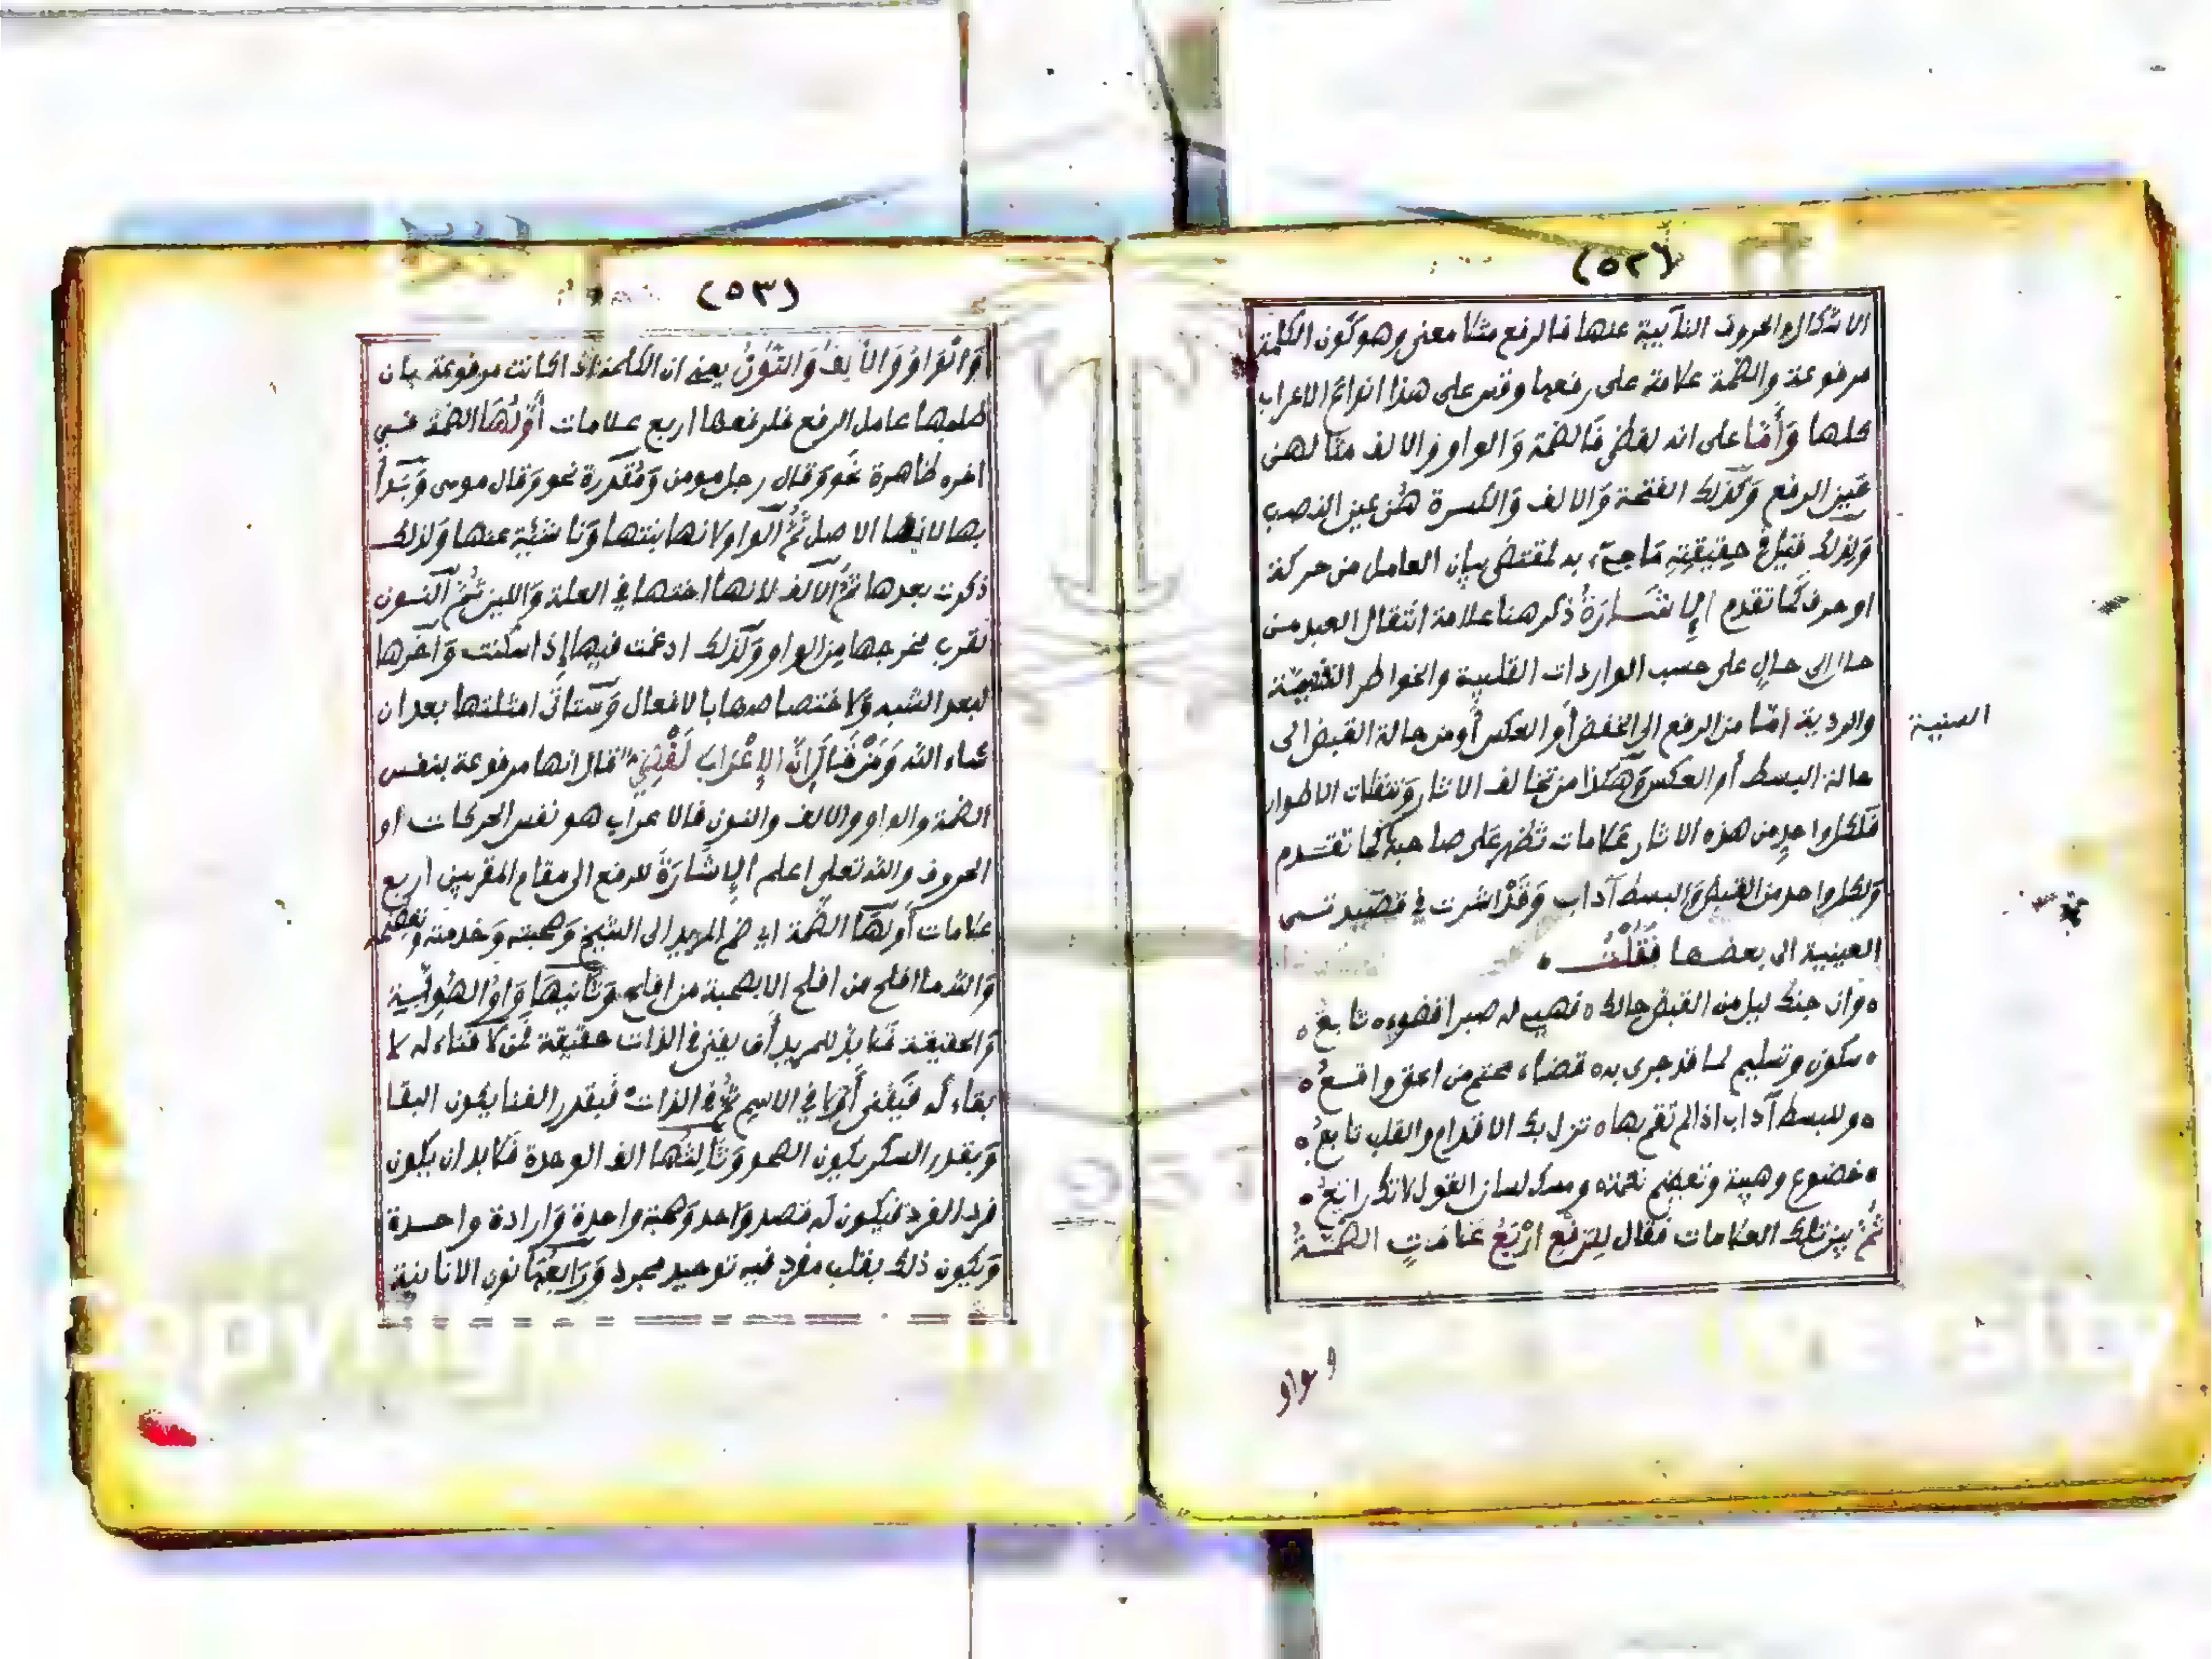 (٥٢)
الاشكال والحروف النآيبة عنها فالرفع مثلا معنى وهو كون الكلمة
مرفوعة والضمة علامة على رفعها وقس على هذا انواع الاعراب
كلها وَأَمَّا على انه لفظي فَالضمة وَالواو والالف مثلا هىَ
عَين الرفع وَكذلك الفتحة وَالالف وَالكسرة هُنّ عين النصب
وَلذلك قيل في حقيقته مَا جيىَء به لمقتضى بيان العامل من حركة
او حرف كَما تقدم الإِشَارَةُ ذكر هنا علامة انتقال العبد من
حال الى حالٍ على حسب الواردات القلبية والخواطر
والردية امّا من الرفع الى الخفض أو العكس أو من حالة القبض الى
السنية
حالة البسط أو العكس وَهكذا من تخالف الاثار وَتنقلات الاطوار
فَلكل واحدٍ من هذه الاثار عَلامات تَظهر عَلى صاحبها كَما تقدم
وَلكل واحد من القبض وَالبسط آداب وَقَدْ اشرت في قصَيد تسمى
العينية الى بعضها فَقُلْتُ
وان جنك ليل من القبض حالك ه فهيىء له صبرا فضوءه تابعُ ه
ه سكون وتسليم لما قد جرى به ه قضاء محتم من احق واقعُ ه
ه وللبسط آداب اذا لم تقم بها ه تزل بك الاقدام والقلب تابعُ ه
ه خضوع وهيبة وتعظيم نعمة ه ومسك لسان القول لانك راتعُ ه
ثُمَّ بين تلك العَلامات فقال لِلرَّفْعِ ارْبَعُ عَلامَاتٍ الضَّمَّةُ
والواو
(٥٣)
وَالْوَاوُ وَالأَلِفُ وَالنُّونُ يعني ان الكلمة اذا كانت مرفوعة بان
طلبها عامل الرفع فلرفعها اربع علامات أَوَّلُهَا الضمة في
اخره ظاهرة نحو وَقال رجل مومن وَمُقدرة نحو وَقال موسى وَبَدأ
بها لانها الاصل ثُمَّ الواو لانها بنتها وَناشئة عنها وَلذلك
ذكرت بعدها ثمّ الآلف لانها اختها في العلة وَاللين ثُمّ النون
لقرب مخرجها من الواو وَلذلك ادغمت فيها إذا سكنت وَآخرها
لبعد الشبه وَلاختصاصها بالافعال وَستاتى امثلتها بعد ان
شاء الله وَمَنْ قَالَ اِنَّ الإِعْرَابَ لَفْظِيّ قال انها مرفوعة بنفس
الضمة والواو والالف والنون فالاعراب هو نفس الحركات او
الحروف والله تعلى اعلم الإِشَارَةُ للرفع الى مقام المقربين اربع
عَلامات أولهَا الضَّمة اي ضم المريد الى الشيخ وَصحبته وَخدمته وتعظيمه
وَالله ما افلح من افلح الا بصحبة من افلح وَثَانِيهَا وَاوُ الهُوِيَّة
وَالحقيقة فَلا بدّ للمريد أن يفنى في الذات حقيقة فَمن لا فناء له لا
بقاء له فَيَفْنى أوّلا في الاسم ثُمّ في الذات فَبقدر الفنا يكون البقا
وَبقدر السكر يكون الصحو وَثَالِثُهَا الف الوحدة فَلا بد ان يكون
فردا لفرد فيكون له قصد وَاحد وَهمة واحدة وَارادة واحدة
وَيكون ذلك بقلب مفرد فيه توحيد مجرد وَرَابِعُهَا نون الانانية